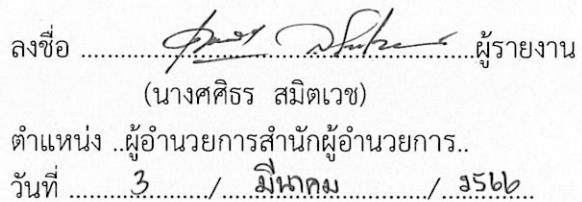 ลงชื่อ ........................................................ผู้รายงาน
(นางศศิธร สมิตเวช)
ตำแหน่ง ..ผู้อำนวยการสำนักผู้อำนวยการ..
วันที่ ..........3........../....มีนาคม............../..2566..........